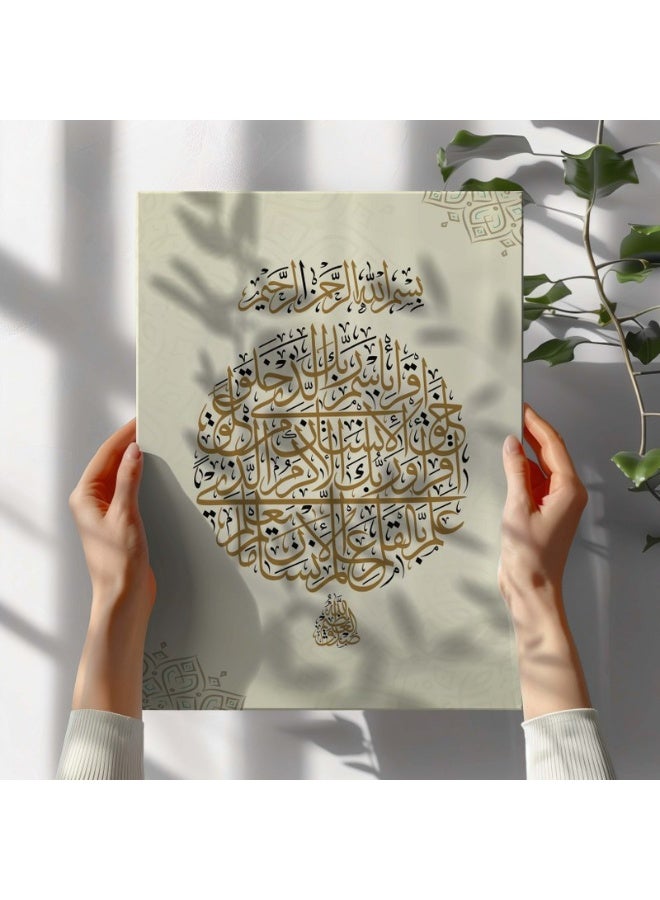 بِسْمِ اللَّهِ الرَّحْمَنِ الرَّحِيمِ
اقْرَأْ بِاسْمِ رَبِّكَ الَّذِي خَلَقَ
خَلَقَ الْإِنْسَانَ مِنْ عَلَقٍ
اقْرَأْ وَرَبُّكَ الْأَكْرَمُ الَّذِي
عَلَّمَ بِالْقَلَمِ عَلَّمَ الْإِنْسَانَ مَا لَمْ يَعْلَمْ
صدق الله العظيم